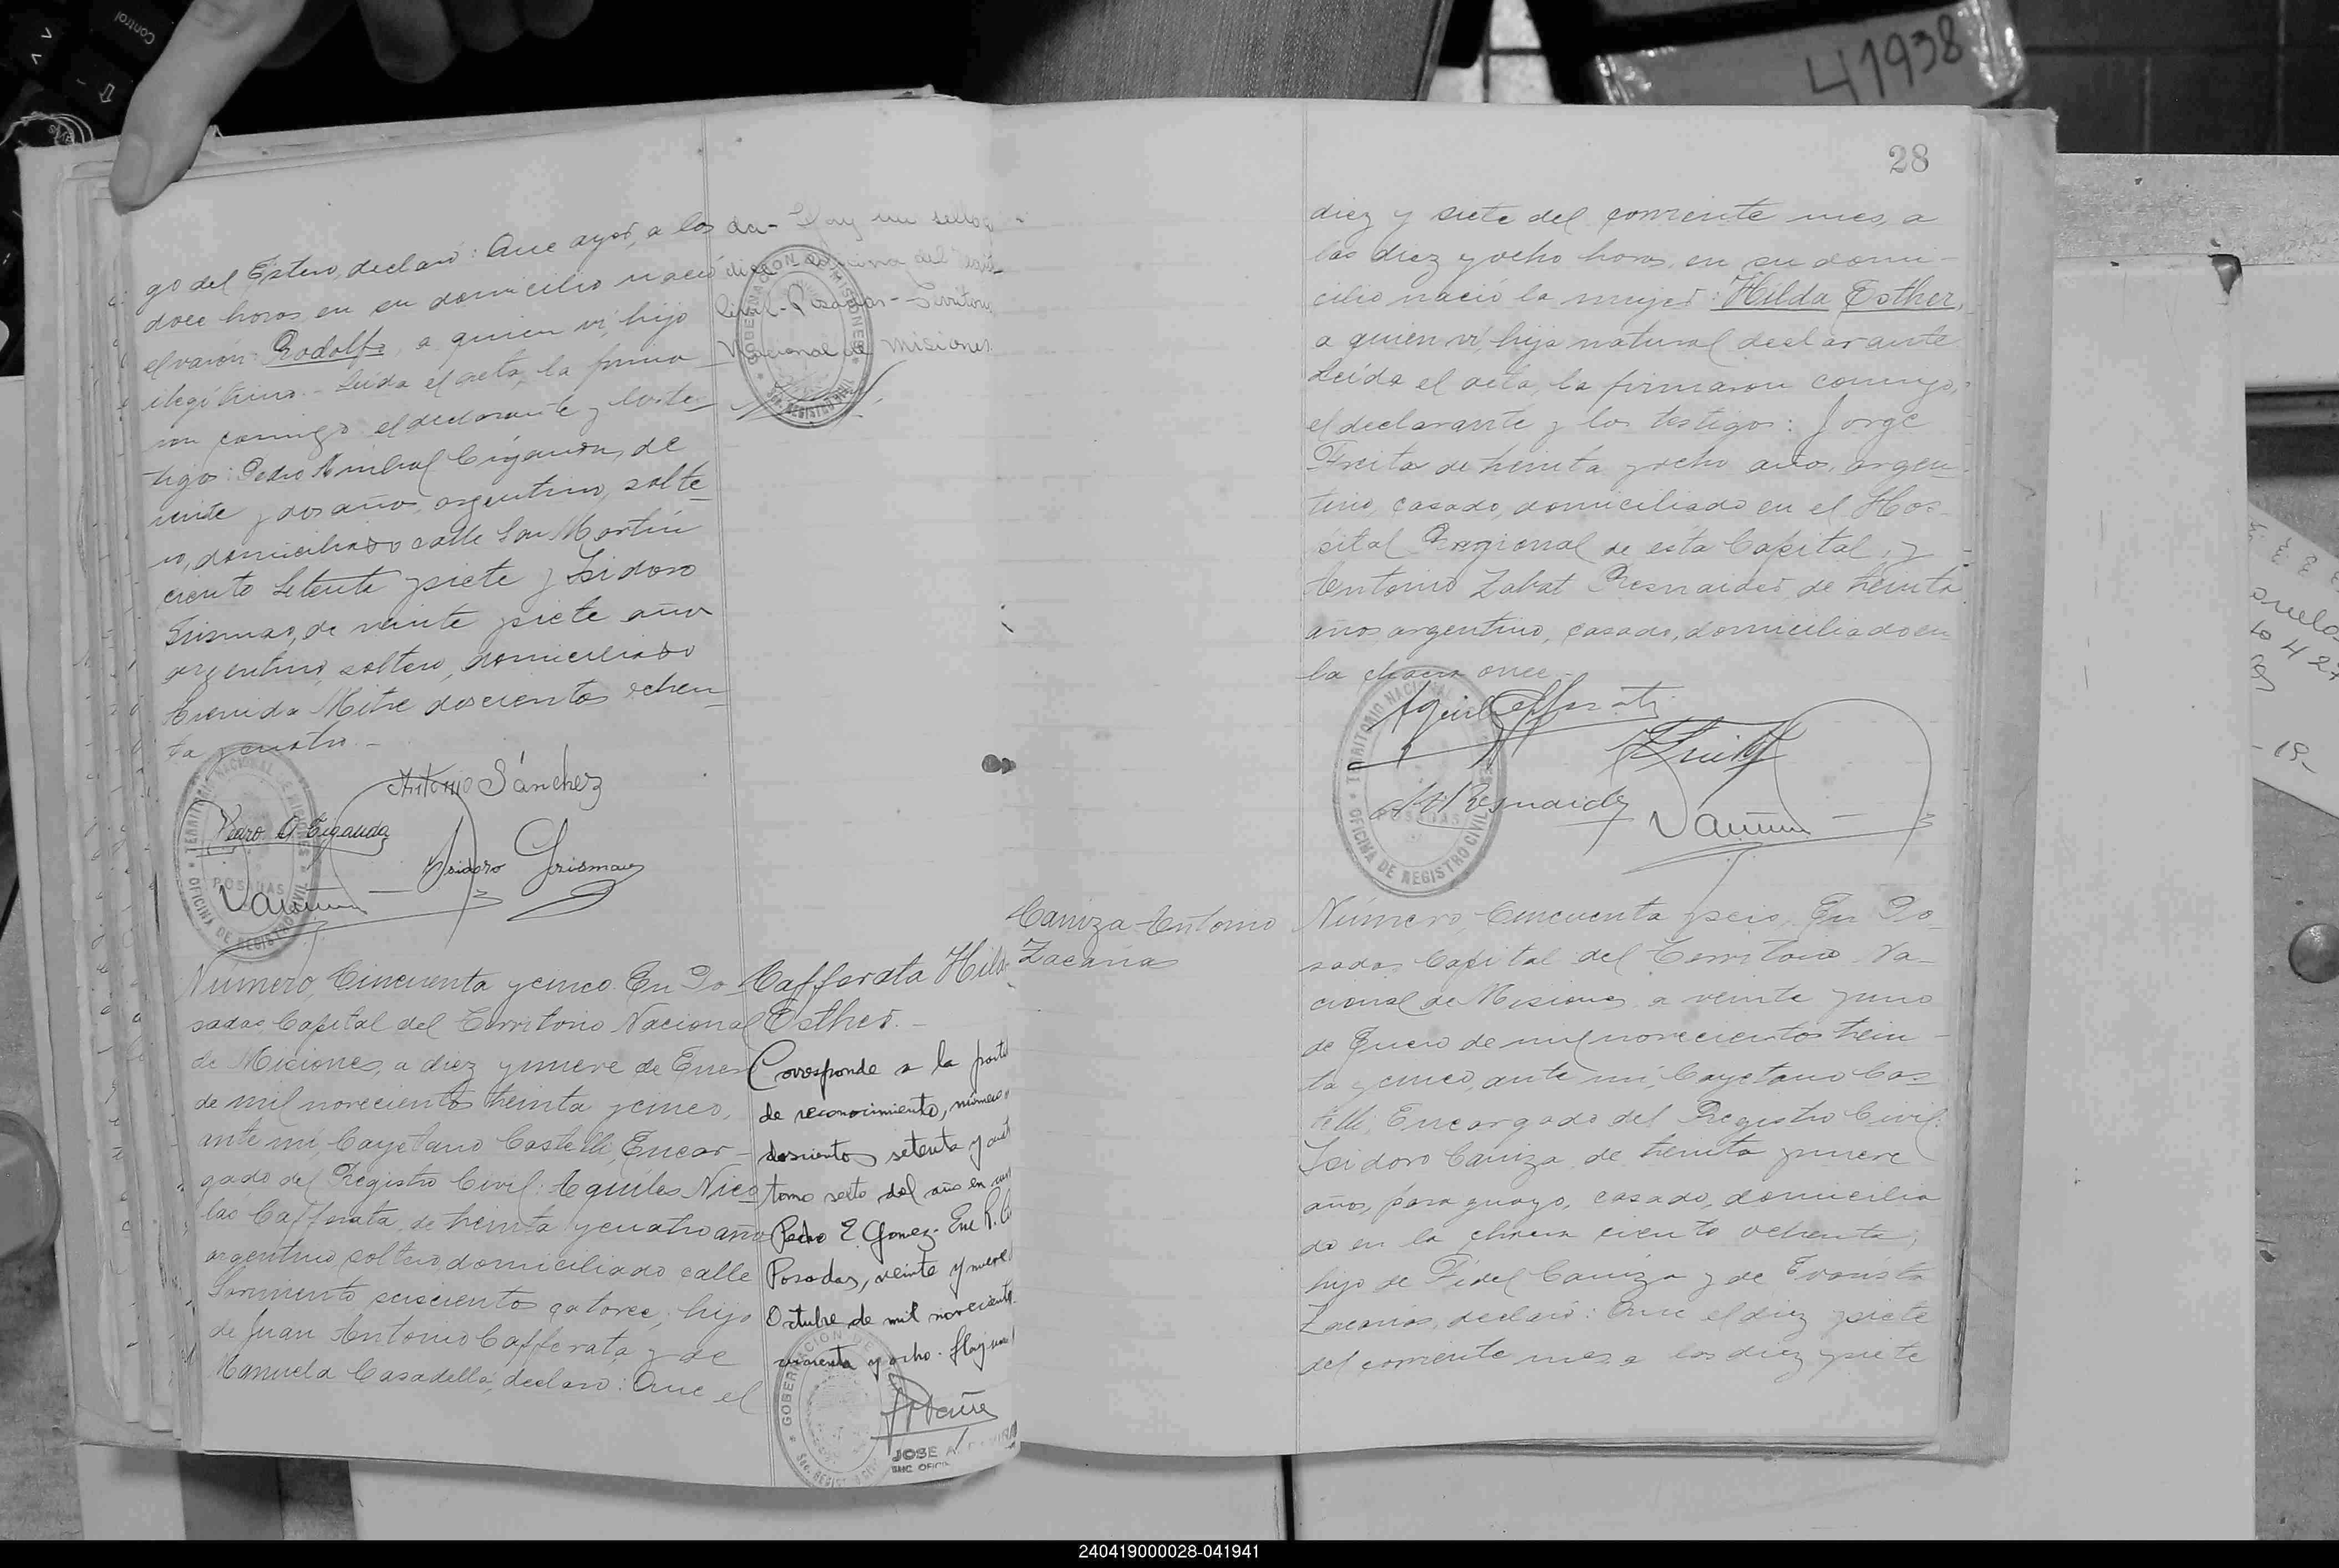 41938
28
go del Estero, declaró: Que ayer, a los
doce horas en su domicilio nació
el varón: Rodolfo, a quien ví, hijo
ilegítimo. - Leída el acta, la firma
ron conmigo el declarante y los tes
tigos: Pedro Anibal Ciganda, de
veinte y dos años, argentino, solte
ro, domiciliado calle San Martín
ciento setenta y siete y Isidoro
Grisman, de veinte y siete años
argentino, soltero, domiciliado
Avenida Mitre doscientos ochen
ta y cuatro. -
da - Hay un sello
dice Oficina del
Civil - Posadas - Territorio
Nacional de Misiones
GOBERNACION DE MISIONES
SEC. REGISTRO CIVIL
Antonio Sánchez
Pedro A. Ciganda
Isidoro Grisman
TERRITORIO NACIONAL DE MISIONES
POSADAS
OFICINA DE REGISTRO CIVIL
Número, Cincuenta y cinco. En Po
sadas Capital del Territorio Nacional
de Misiones, a diez y nueve de Enero
de mil novecientos treinta y cinco,
ante mí, Cayetano Castelli, Encar
gado del Registro Civil: Aquiles Nico
lás Cafferata, de treinta y cuatro años
argentino, soltero, domiciliado calle
Sarmiento seiscientos catorce; hijo
de Juan Antonio Cafferata, y de
Manuela Casadella, declaró: Que el
Cafferata Hilda
Esther. -
Corresponde a la parte
de reconocimiento, número
doscientos setenta y
tomo sexto del año en
Pedro E. Gomez - Enc R.
Posadas, veinte y nueve
Octubre de mil novecientos
y ocho. Hay un
GOBERNACION DE
SEC. REGISTRO CIVIL
JOSE A.
diez y siete del corriente mes, a
las diez y ocho horas, en su domi-
cilio nació la mujer: Hilda Esther,
a quien ví, hija natural declarante
Leída el acta, la firmaron conmigo,
el declarante y los testigos: Jorge
Freita de treinta y ocho años, argen
tino, casado, domiciliado en el Hos
pital Regional de esta Capital, y
Antonio Zabat Resnaider, de treinta
años argentino, casado, domiciliado en
la chacra once. -
TERRITORIO NACIONAL
POSADAS
OFICINA DE REGISTRO CIVIL
Caniza Antonio
Zacarias
Número, Cincuenta y seis. En Po
sadas Capital del Territorio Na-
cional de Misiones, a veinte y uno
de Enero de mil novecientos trein-
ta y cinco, ante mí, Cayetano Cas
telli, Encargado del Registro Civil:
Isidoro Caniza, de treinta y nueve
años, paraguayo, casado, domicilia
do en la chacra ciento ochenta;
hijo de Fidel Caniza y de Evarista
Zacarías, declaró: Que el diez y siete
del corriente mes, a las diez y siete
240419000028-041941